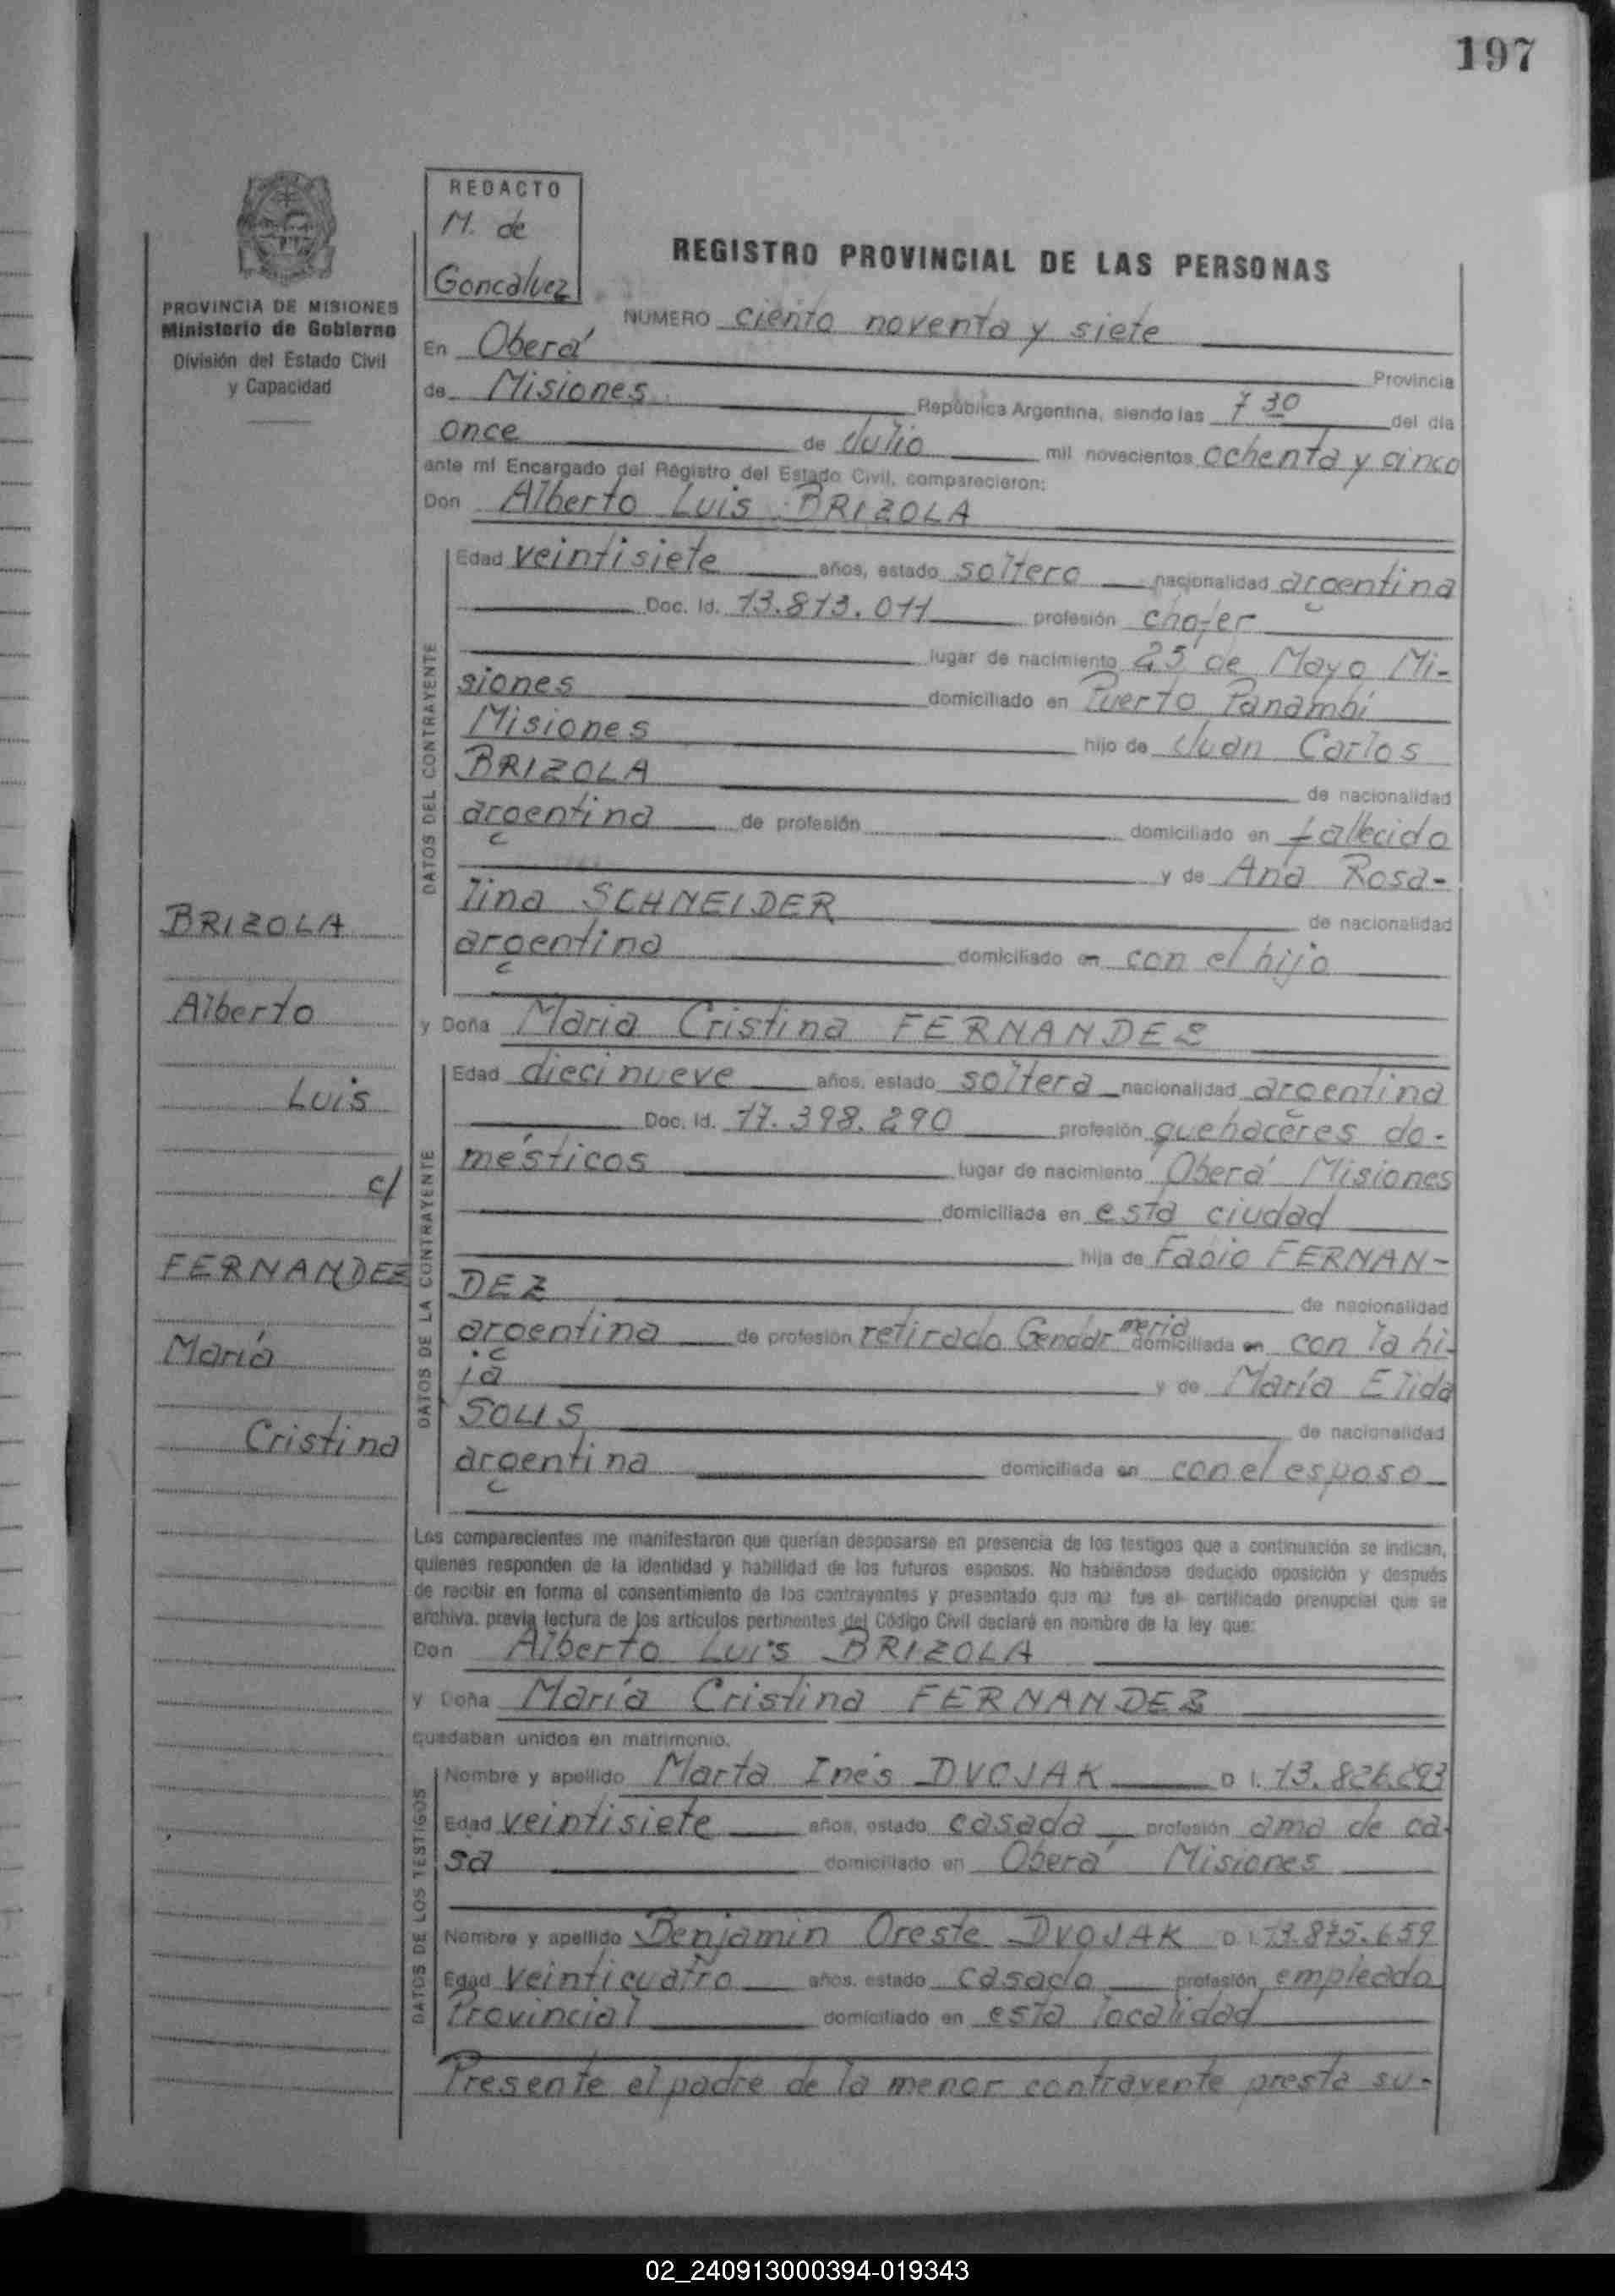 197
REDACTO
M. de
Goncalvez
PROVINCIA DE MISIONES
Ministerio de Gobierno
División del Estado Civil
y Capacidad
REGISTRO PROVINCIAL DE LAS PERSONAS
NUMERO ciento noventa y siete
En Oberá Provincia
de Misiones República Argentina, siendo las 7 30 del día
once de Julio mil novecientos ochenta y cinco
ante mí Encargado del Registro del Estado Civil, comparecieron:
Don Alberto Luis BRIZOLA
DATOS DEL CONTRAYENTE
Edad veintisiete años, estado soltero nacionalidad argentina
Doc. Id. 13.813.011 profesión chofer
lugar de nacimiento 25 de Mayo Mi-
siones domiciliado en Puerto Panambi
Misiones hijo de Juan Carlos
BRIZOLA de nacionalidad
argentina de profesión domiciliado en fallecido
y de Ana Rosa-
lina SCHNEIDER de nacionalidad
argentina domiciliado en con el hijo
y Doña Maria Cristina FERNANDEZ
DATOS DE LA CONTRAYENTE
Edad diecinueve años, estado soltera nacionalidad argentina
Doc. Id. 17.398.290 profesión quehaceres do-
mésticos lugar de nacimiento Oberá Misiones
domiciliada en esta ciudad
hija de Fabio FERNAN-
DEZ de nacionalidad
argentina de profesión retirado Gendarmeria domiciliada en con la hi-
ja y de María Elida
SOLIS de nacionalidad
argentina domiciliada en con el esposo
Los comparecientes me manifestaron que querían desposarse en presencia de los testigos que a continuación se indican,
quienes responden de la identidad y habilidad de los futuros esposos. No habiéndose deducido oposición y después
de recibir en forma el consentimiento de los contrayentes y presentado que me fue el certificado prenupcial que se
archiva, previa lectura de los artículos pertinentes del Código Civil declaré en nombre de la ley que:
Don Alberto Luis BRIZOLA
y Doña María Cristina FERNANDEZ
quedaban unidos en matrimonio.
DATOS DE LOS TESTIGOS
Nombre y apellido Marta Inés DVOJAK D I. 13.826.293
Edad veintisiete años, estado casada profesión ama de ca-
sa domiciliado en Oberá Misiones
Nombre y apellido Benjamin Oreste DVOJAK D I. 13.875.659
Edad veinticuatro años, estado casado profesión empleado
Provincial domiciliado en esta localidad
Presente el padre de la menor contrayente presta su-
BRIZOLA
Alberto
Luis
c/
FERNANDEZ
María
Cristina
02_240913000394-019343